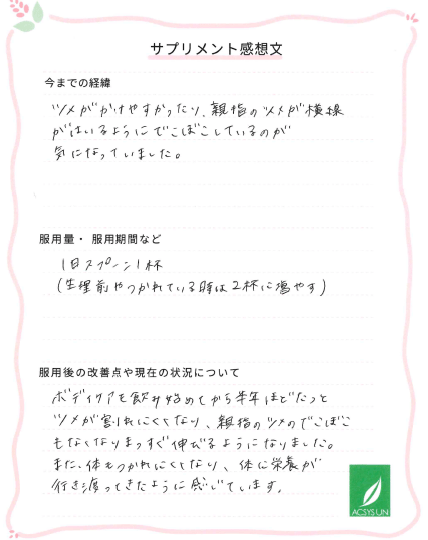 サプリメント感想文
今までの経緯
ツメがかけやすかったり、親指のツメが横線
がはいるようにでこぼこしているのが
気になっていました。
服用量・服用期間など
1日スプーン1杯
(生理前やつかれている時は2杯に増やす)
服用後の改善点や現在の状況について
ボディケアを飲み始めてから半年ほどたつと
ツメが割れにくくなり、親指のツメのでこぼこ
もなくなりまっすぐ伸びるようになりました。
また、体もつかれにくくなり、体に栄養が
行き渡ってきたように感じています。
ACSYS UN